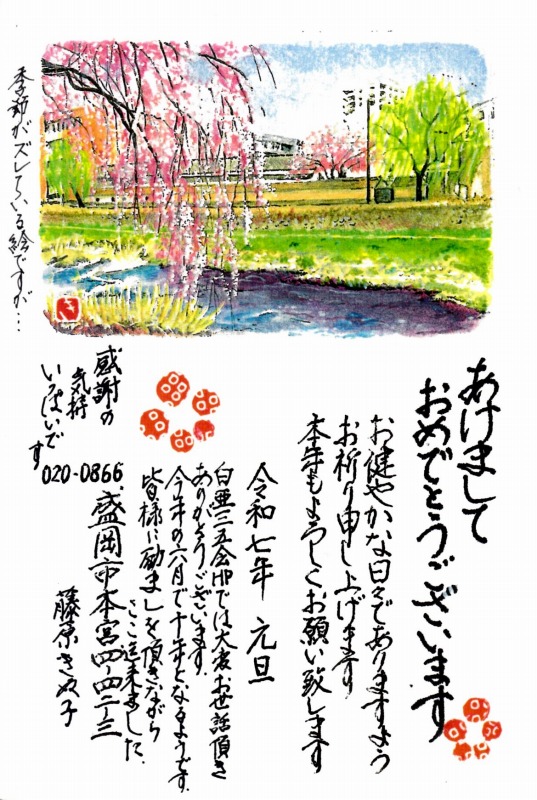 あけまして
おめでとうございます
お健やかな日々でありますよう
お祈り申し上げます
本年もよろしくお願い致します
令和七年 元旦
白亜三五会HPでは大変お世話頂き
ありがとうございます。
今年の六月で十年となるようです。
皆様に励ましを頂きながら
ここ迄来ました。
020-0866
盛岡市本宮四-四二-三
藤原きぬ子
感謝の
気持
いっぱいです
季節がズレている絵ですが…
き